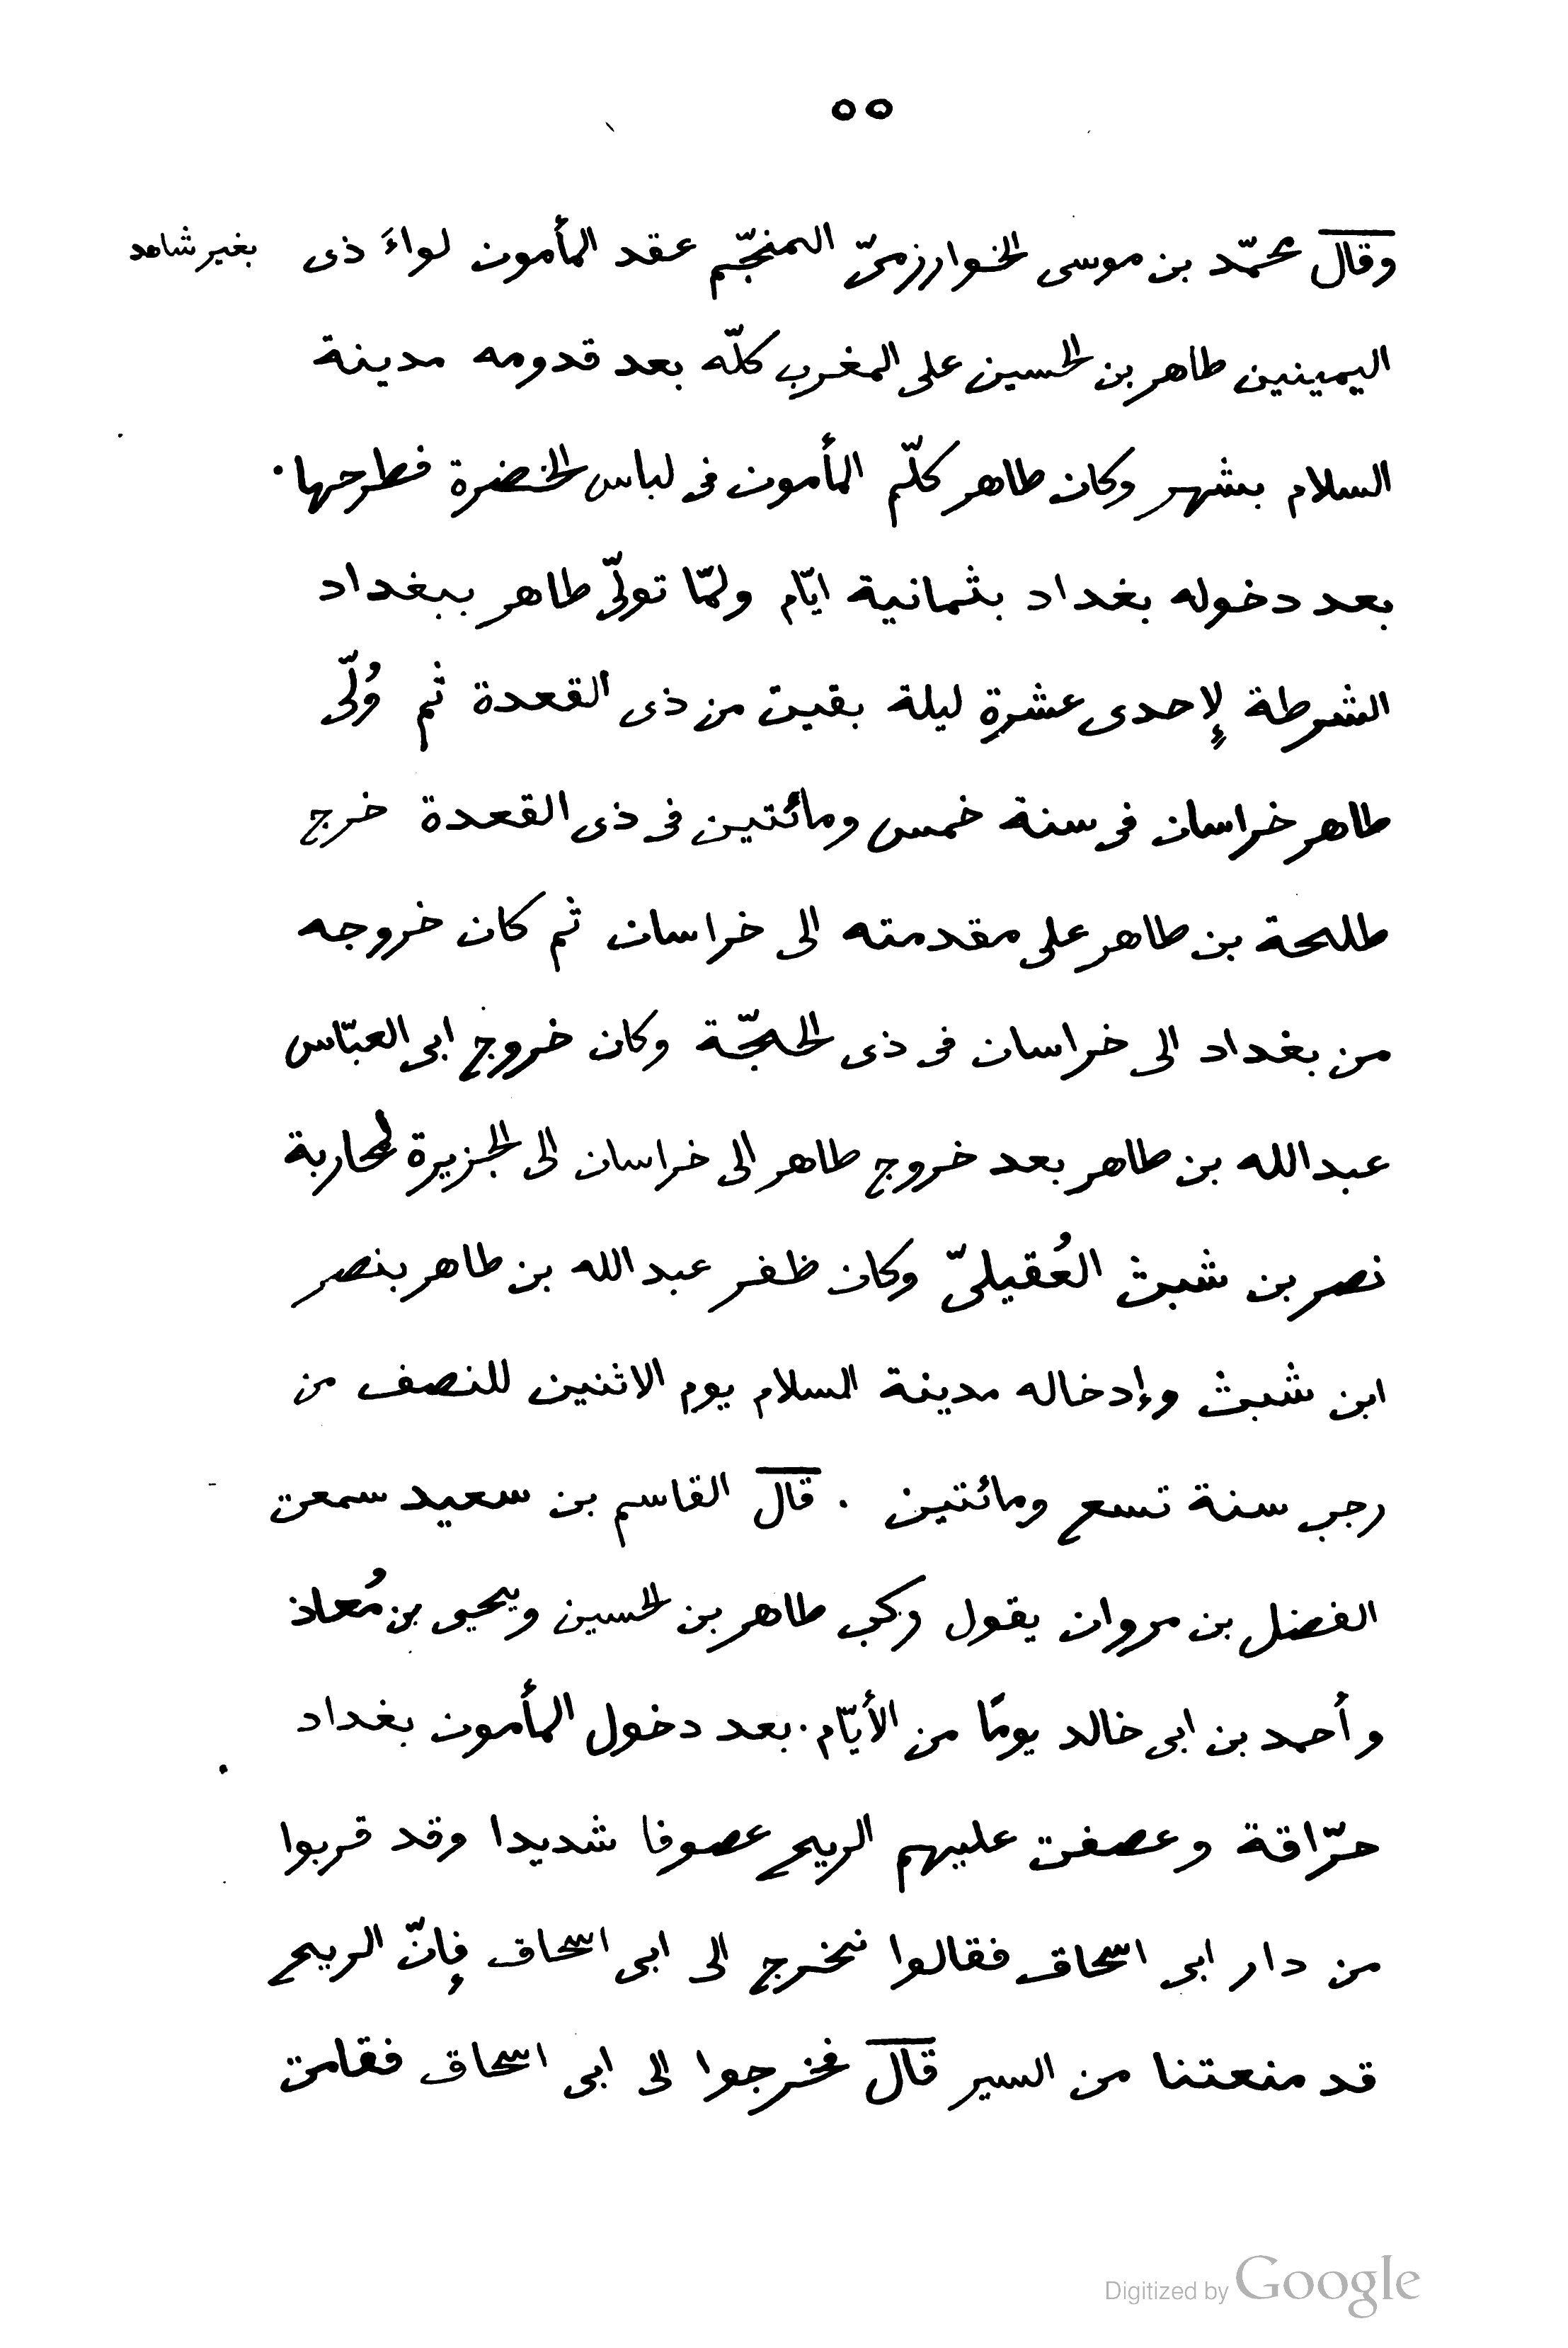 ٥٥
وقال محمّد بن موسى الخوارزمىّ المنجّم عقد المأمون لواءَ ذى
بغير شاهد
اليمينين طاهر بن الحسين على المغرب كلّه بعد قدومه مدينة
السلام بشهر وكان طاهر كلّم المأمون فى لباس الخضرة فطرحها.
بعد دخوله بغداد بثمانية ايّام ولمّا تولّى طاهر ببغداد
الشرطة لإحدى عشرةِ ليلة بقيت من ذى القعدة ثم وُلّى
طاهر خراسان فى سنة خمس ومائتين فى ذى القعدة خرج
طلحة بن طاهر على مقدمته الى خراسان ثم كان خروجه
من بغداد الى خراسان فى ذى الحجّة وكان خروج ابى العبّاس
عبد الله بن طاهر بعد خروج طاهر الى خراسان الى الجزيرة لمحاربة
نصر بن شبث العُقيلىّ وكان ظفر عبد الله بن طاهر بنصر
ابن شبث وإدخاله مدينة السلام يوم الاثنين للنصف من
رجب سنة تسع ومائتين . قال القاسم بن سعيد سمعت
الفضل بن مروان يقول ركب طاهر بن الحسين ويحيى بن مُعاذ
وأحمد بن ابى خالد يومًا من الأيّام. بعد دخول المأمون بغداد
حرّاقة وعصفت عليهم الريح عصوفا شديدا وقد قربوا
من دار ابى اسحاق فقالوا نخرج الى ابى اسحاق فإنّ الريح
قد منعتنا من السير قال فخرجوا الى ابى اسحاق فقامت
Digitized by Google